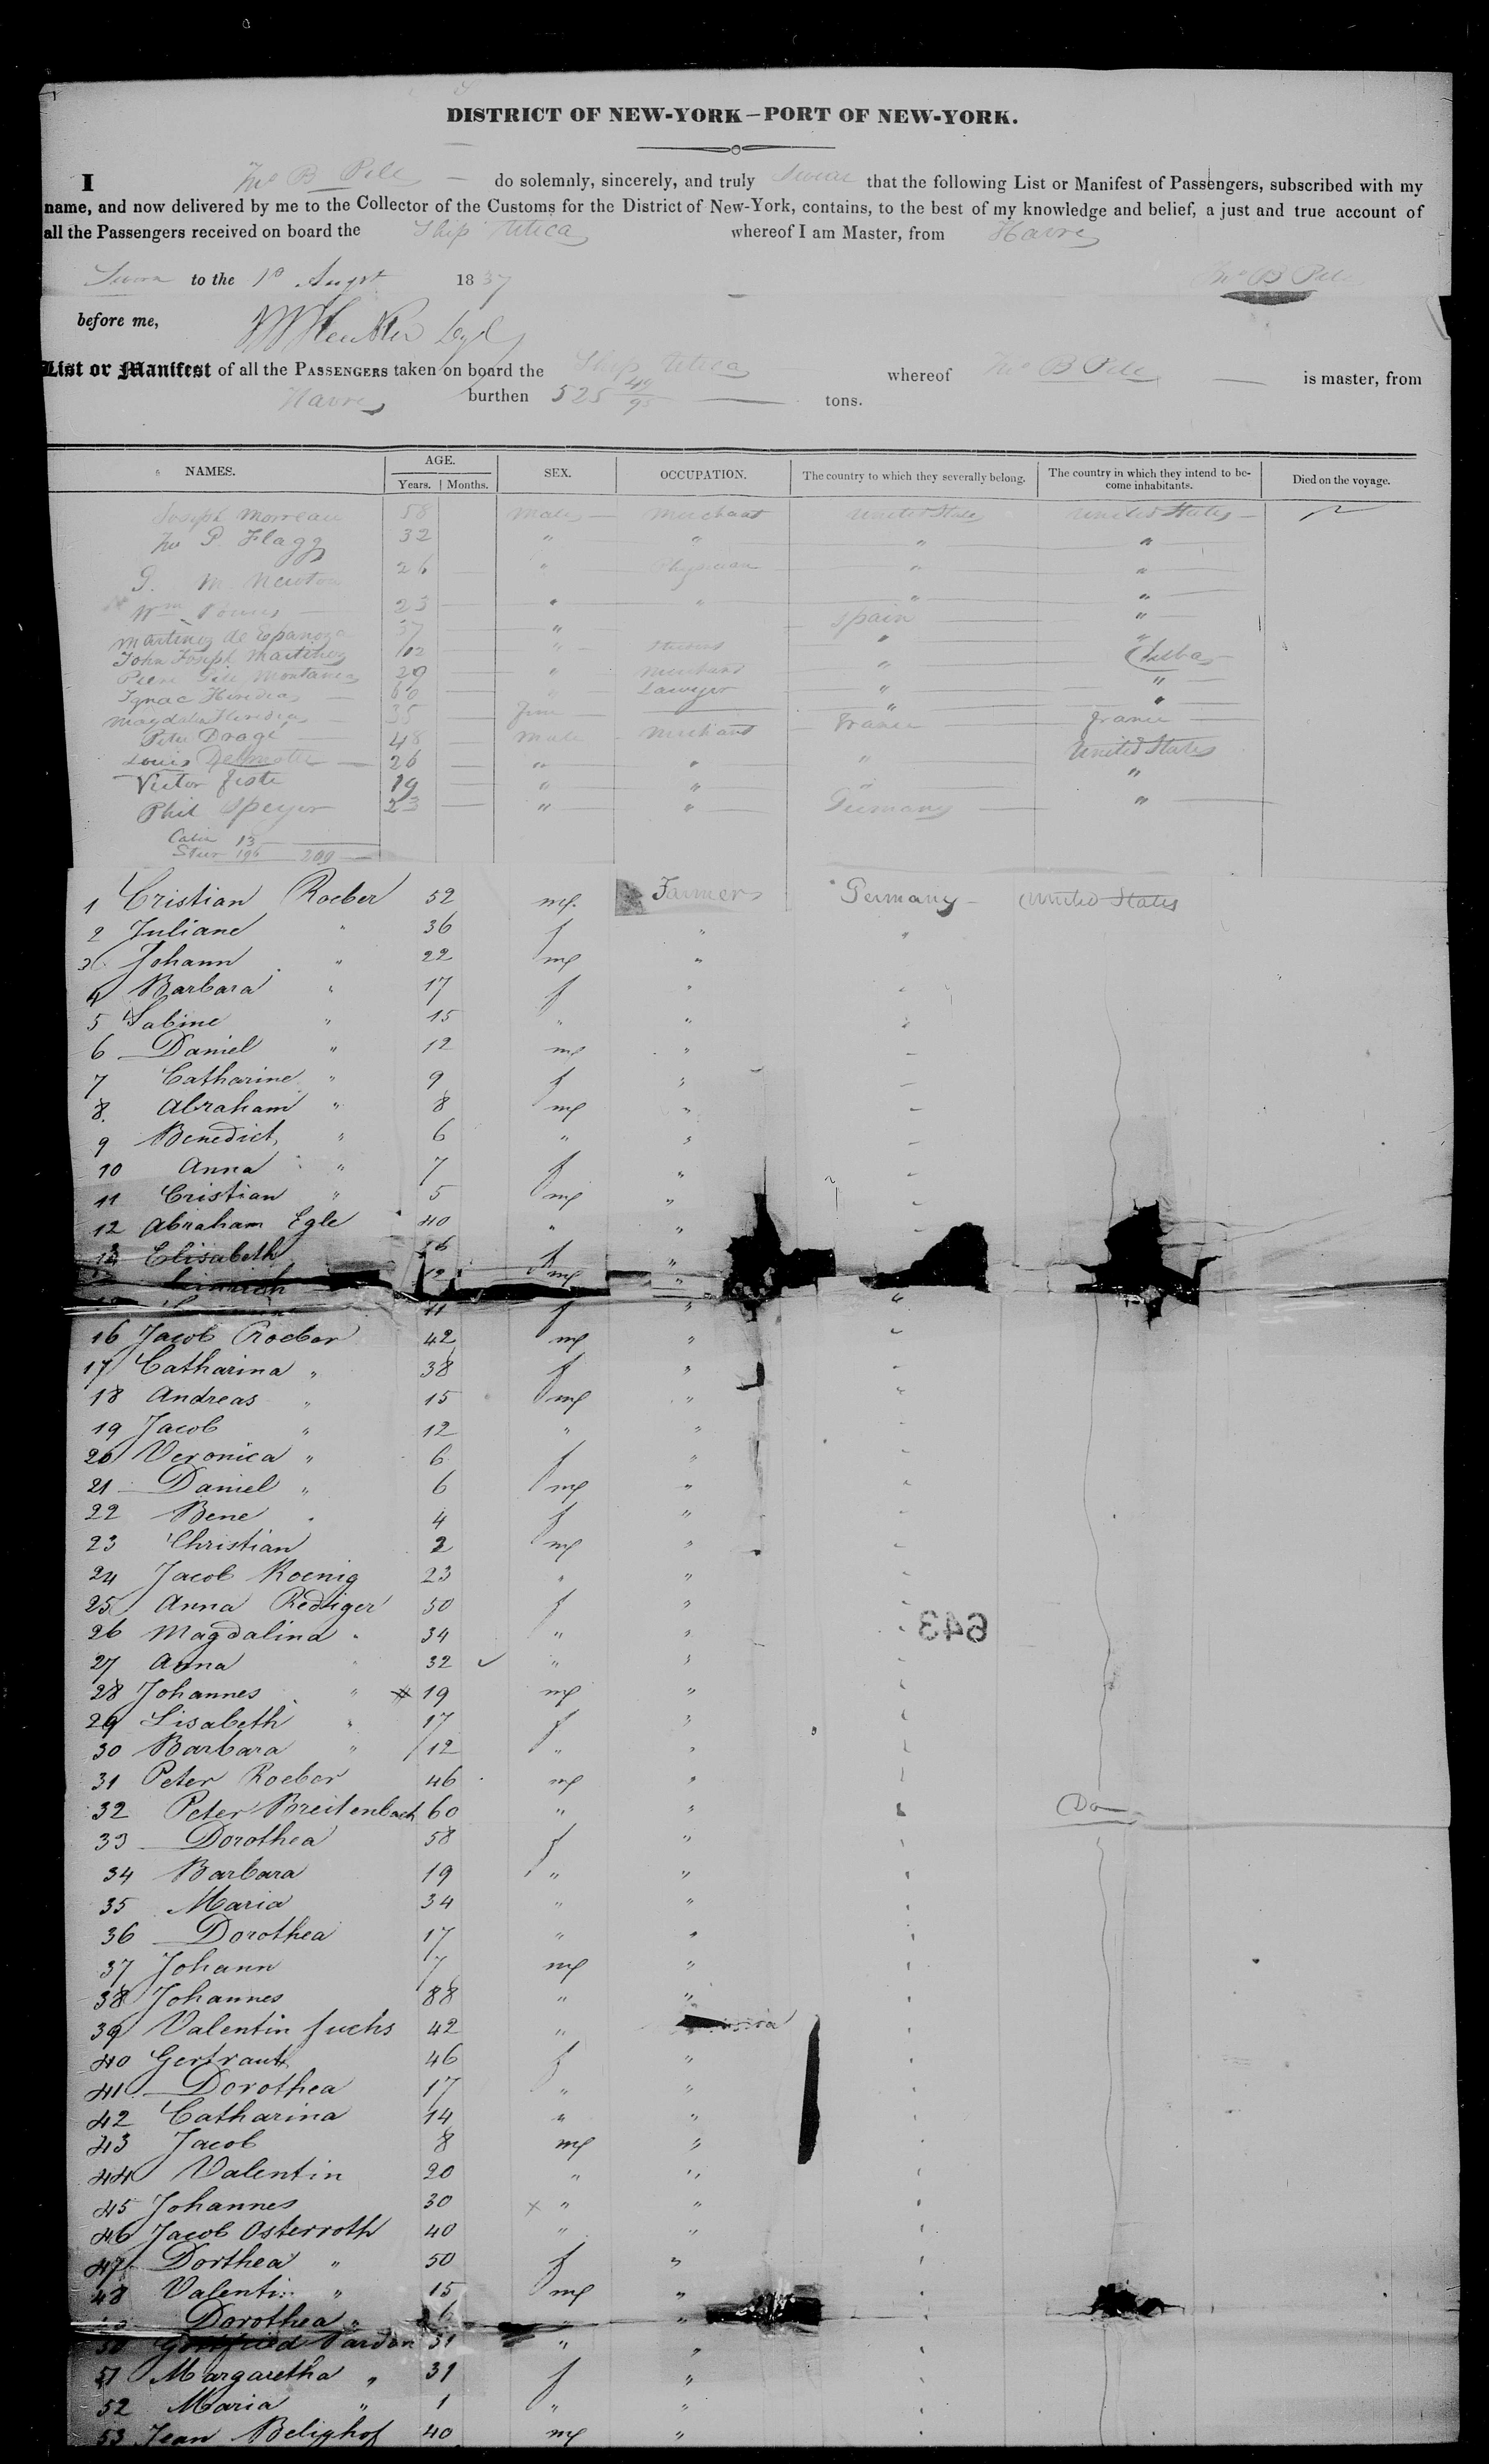 DISTRICT OF NEW-YORK—PORT OF NEW-YORK.
I B Pell do solemnly, sincerely, and truly Swear that the following List or Manifest of Passengers, subscribed with my
name, and now delivered by me to the Collector of the Customs for the District of New-York, contains, to the best of my knowledge and belief, a just and true account of
all the Passengers received on board the Ship Utica whereof I am Master, from Havre
to the 1 Augst 1837 B Pell
before me,
List or Manifest of all the PASSENGERS taken on board the Ship Utica whereof B Pell is master, from
Havre burthen 525 49/95 tons.
NAMES. AGE. SEX. OCCUPATION. The country to which they severally belong. The country in which they intend to be- Died on the voyage.
Years. Months. come inhabitants.
Joseph Morreau 58 Male Merchant United States United States
P. Flagg 32 " " " "
G. M. Newton 26 " Physician " "
Wm 23 " " " "
Martinez de Espanoza 37 " Spain "
John Joseph Martinez 12 " " "
Montanes 29 " Merchant " Cuba
Ignac Heredia 60 " Lawyer " "
Magdalen Heredia 35 Fem " "
Peter Dragé 48 Male Merchant France France
Louis 26 " " " United States
Victor 19 " " " "
Phil Speyer 23 " " Germany "
Cabin 13
Steer 196 209
1 Cristian Roeber 52 m Farmers Germany United States
2 Juliane " 36 f " "
3 Johann " 22 m "
4 Barbara " 17 f "
5 Sabine " 15 " "
6 Daniel " 12 m "
7 Catharine " 9 f "
8 Abraham " 8 m "
9 Benedict " 6 " "
10 Anna " 7 f "
11 Cristian " 5 m "
12 Abraham Egle 40 " "
13 Elisabeth f "
12 m "
11 f "
16 Jacob Roeber 42 m "
17 Catharina " 38 f "
18 Andreas " 15 m "
19 Jacob " 12 " "
20 Veronica " 6 f "
21 Daniel " 6 m "
22 Bene " 4 f "
23 Christian 2 m "
24 Jacob Koenig 23 " "
25 Anna Rediger 50 f "
26 Magdalina " 34 " " 643
27 Anna " 32 " "
28 Johannes " 19 m "
29 Lisabeth " 17 f "
30 Barbara " 12 " "
31 Peter Roeber 46 m "
32 Peter Breitenbach 60 " " Do
33 Dorothea 58 f "
34 Barbara 19 " "
35 Maria 34 " "
36 Dorothea 17 " "
37 Johann 7 m "
38 Johannes 88 " "
39 Valentin Fuchs 42 "
40 Gertraut 46 f "
41 Dorothea 17 " "
42 Catharina 14 " "
43 Jacob 8 m "
44 Valentin 20 " "
45 Johannes 30 " "
46 Jacob Osterroth 40 " "
47 Dorthea " 50 f "
48 Valentin " 15 m "
Dorothea " " "
50 Gottfried Vardon 31 " "
51 Margaretha " 31 f "
52 Maria " 1 " "
53 Jean Belighof 40 m "